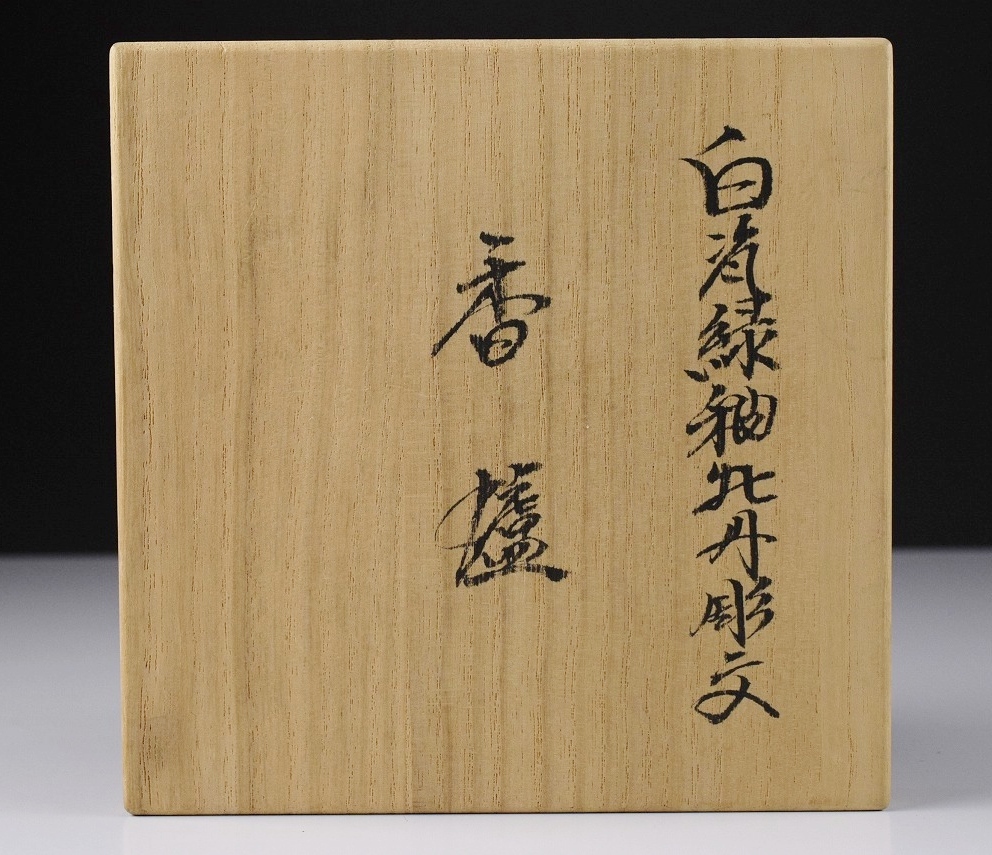 白瓷緑釉牡丹彫文
香爐